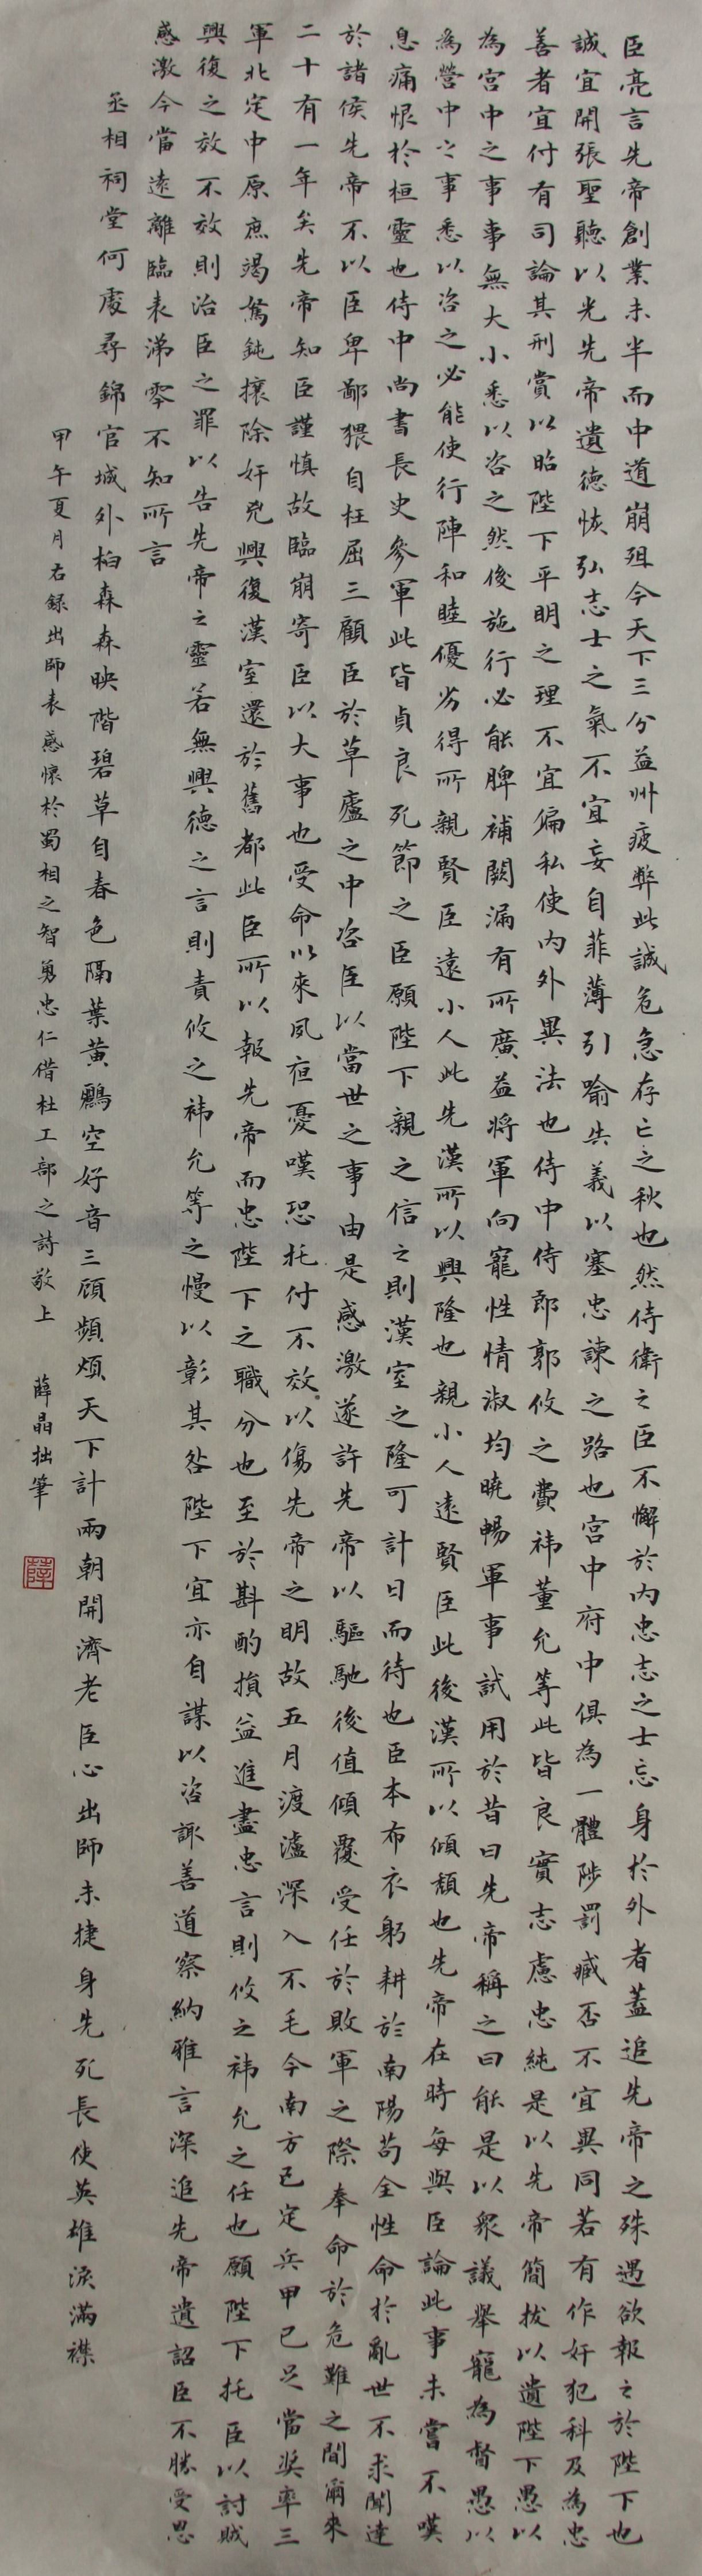 臣亮言先帝創業未半而中道崩殂今天下三分益州疲弊此誠危急存亡之秋也然侍衛之臣不懈於内忠志之士忘身於外者蓋追先帝之殊遇欲報之於陛下也
誠宜開張聖聽以光先帝遺德恢弘志士之氣不宜妄自菲薄引喻失義以塞忠諫之路也宫中府中俱為一體陟罰臧否不宜異同若有作奸犯科及為忠
善者宜付有司論其刑賞以昭陛下平明之理不宜偏私使内外異法也侍中侍郎郭攸之費禕董允等此皆良實志慮忠純是以先帝簡拔以遺陛下愚以
為宫中之事事無大小悉以咨之然後施行必能脾補闕漏有所廣益將軍向寵性情淑均曉暢軍事試用於昔日先帝稱之曰能是以衆議舉寵為督愚以
為營中之事悉以咨之必能使行陣和睦優劣得所親賢臣遠小人此先漢所以興隆也親小人遠賢臣此後漢所以傾頹也先帝在時每與臣論此事未嘗不嘆
息痛恨於桓靈也侍中尚書長史參軍此皆貞良死節之臣願陛下親之信之則漢室之隆可計日而待也臣本布衣躬耕於南陽苟全性命於亂世不求聞達
於諸侯先帝不以臣卑鄙猥自枉屈三顧臣於草廬之中咨臣以當世之事由是感激遂許先帝以驅馳後值傾覆受任於敗軍之際奉命於危難之間爾來
二十有一年矣先帝知臣謹慎故臨崩寄臣以大事也受命以來夙夜憂嘆恐托付不效以傷先帝之明故五月渡瀘深入不毛今南方已定兵甲已足當奖率三
軍北定中原庶竭駑鈍攘除奸兇興復漢室還於舊都此臣所以報先帝而忠陛下之職分也至於斟酌損益進盡忠言則攸之禕允之任也願陛下托臣以討賊
興復之效不效則治臣之罪以告先帝之靈若無興德之言則責攸之禕允等之慢以彰其咎陛下宜亦自謀以咨諏善道察納雅言深追先帝遺詔臣不勝受恩
感激今當遠離臨表涕零不知所言
丞相祠堂何處尋錦官城外柏森森映階碧草自春色隔葉黄鸝空好音三顧頻煩天下計兩朝開濟老臣心出師未捷身先死長使英雄淚滿襟
甲午夏月右録出師表感懷於蜀相之智勇忠仁借杜工部之詩敬上 薛晶拙筆
薛